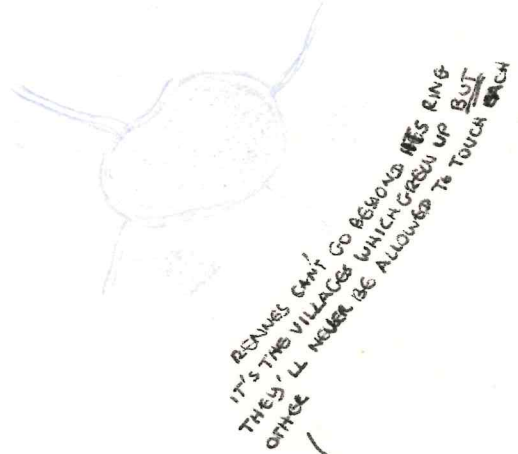 RENNES CAN'T GO BEYOND ITS RING
IT'S THE VILLAGES WHICH GREW UP BUT
THEY'LL NEVER BE ALLOWED TO TOUCH EACH
OTHER